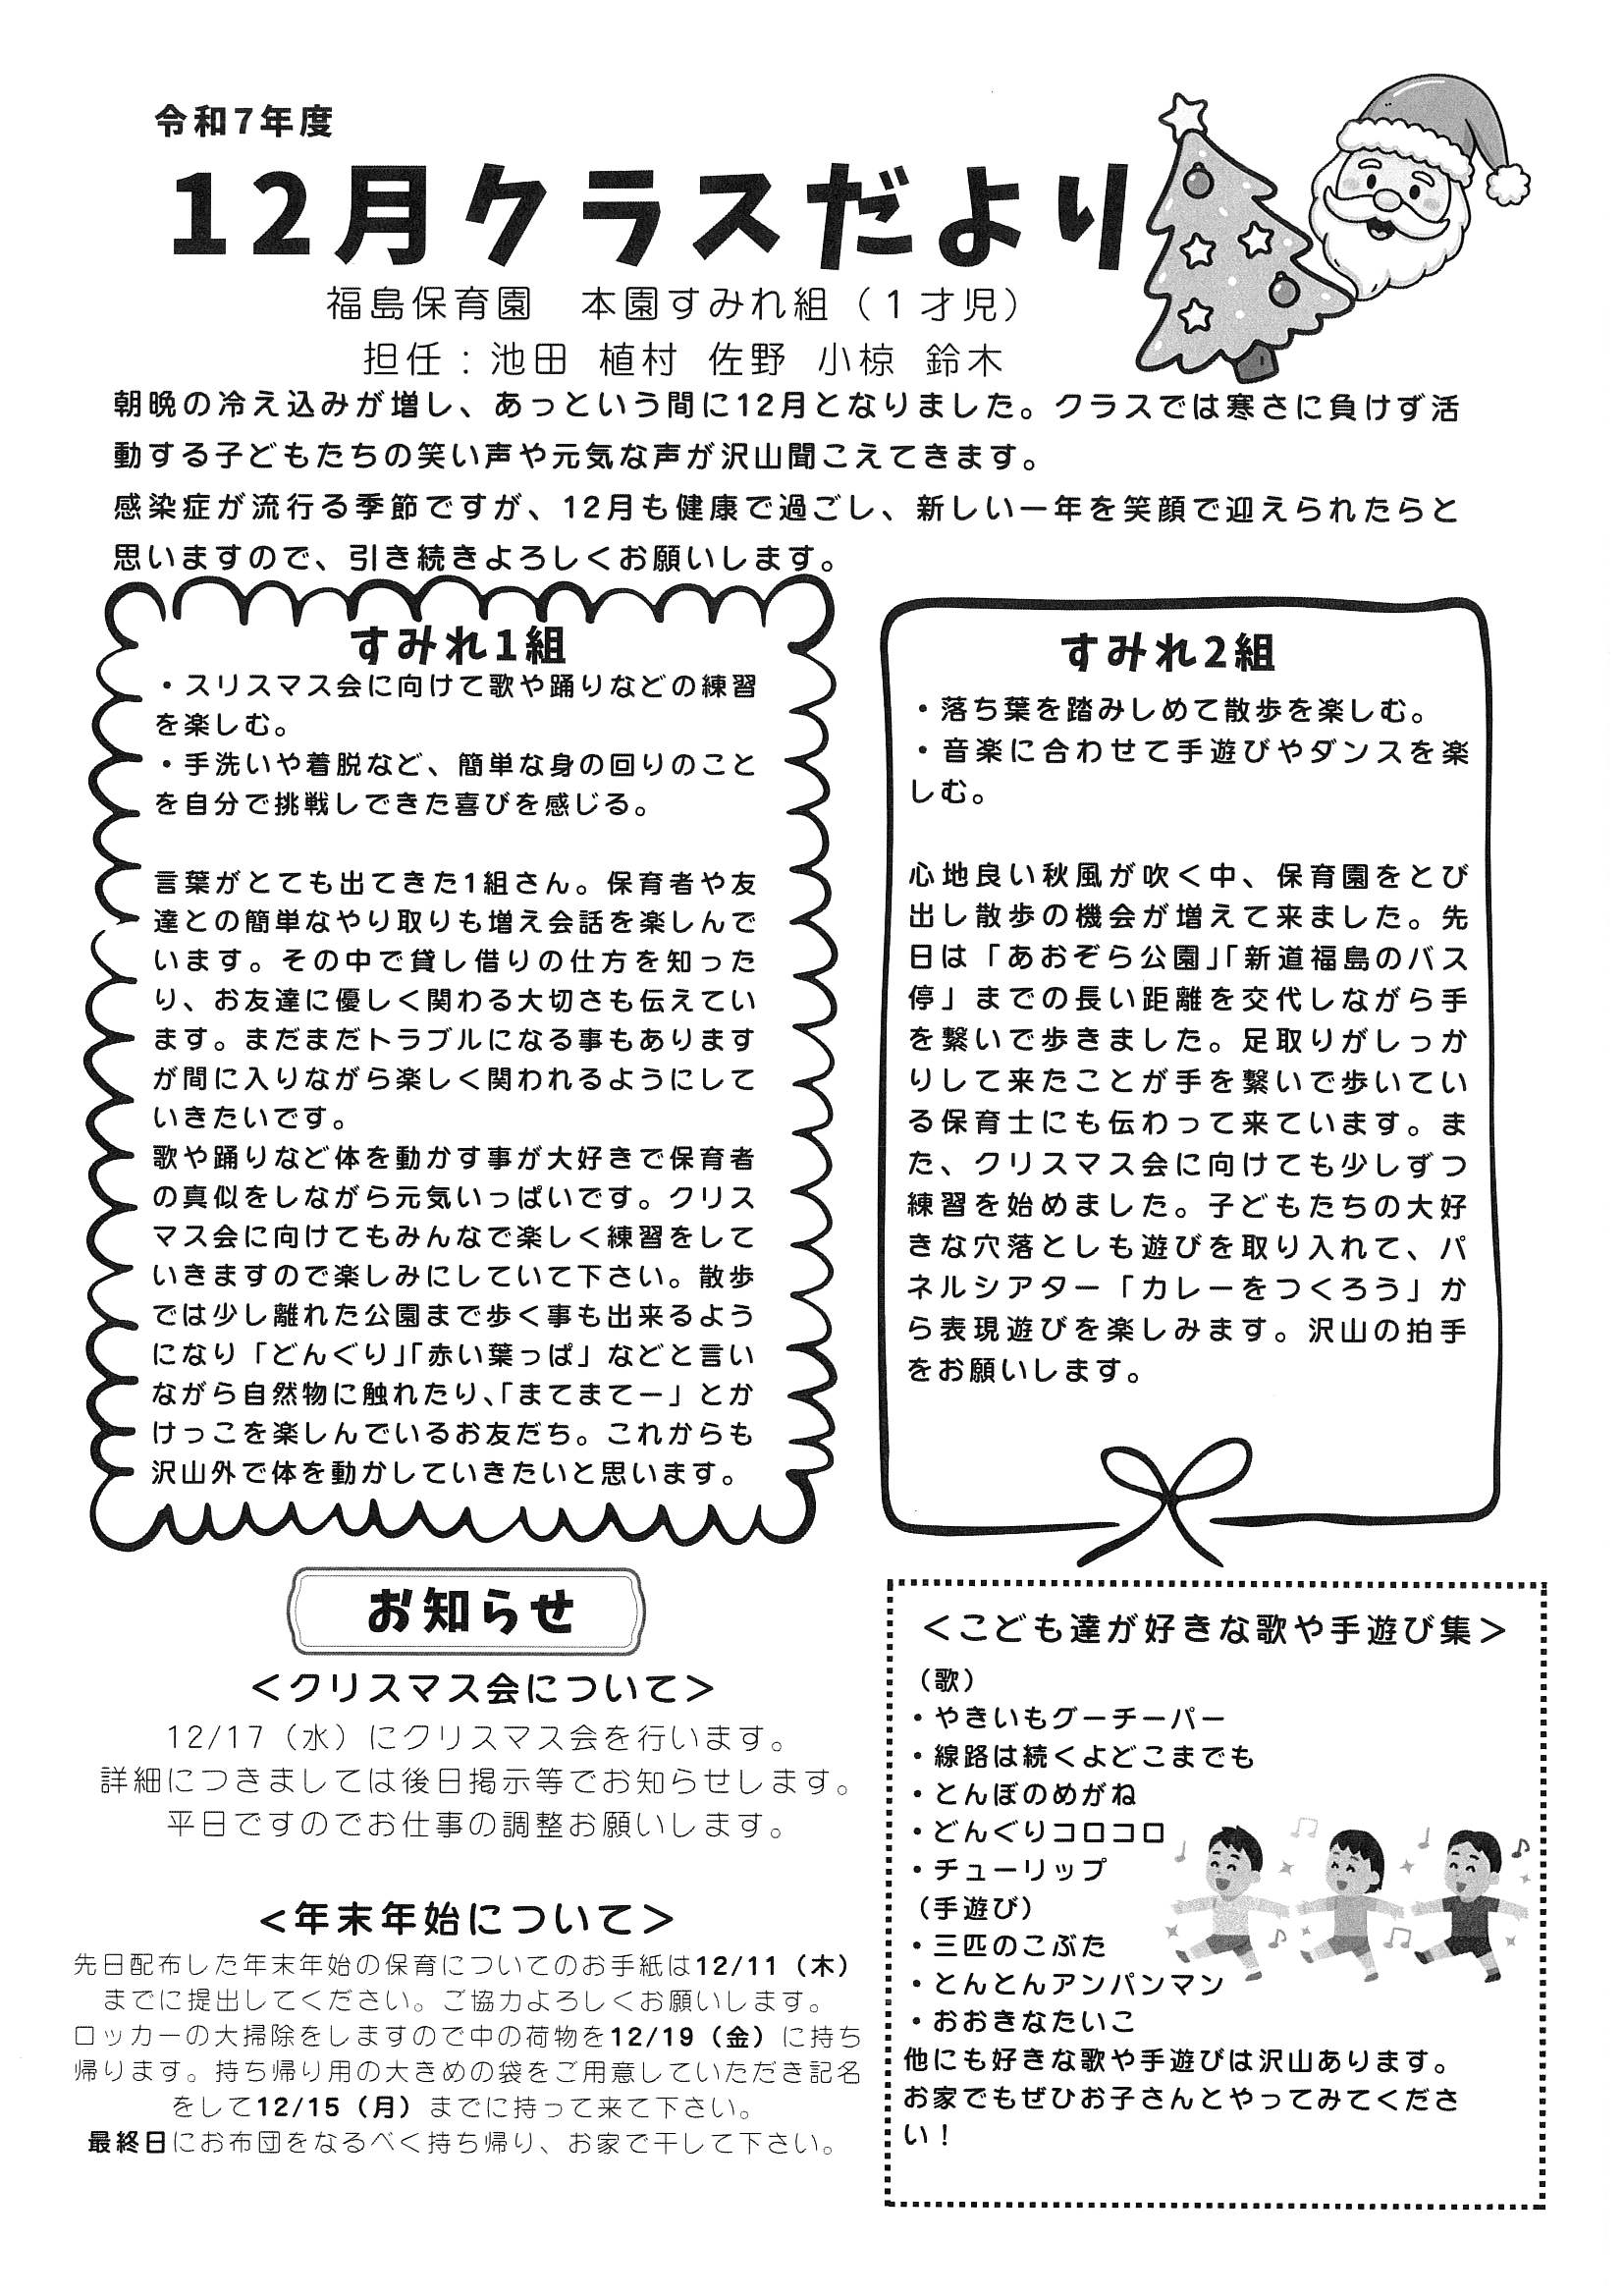 令和7年度
12月クラスだより
福島保育園　本園すみれ組（1才児）
担任：池田 植村 佐野 小椋 鈴木
朝晩の冷え込みが増し、あっという間に12月となりました。クラスでは寒さに負けず活
動する子どもたちの笑い声や元気な声が沢山聞こえてきます。
感染症が流行る季節ですが、12月も健康で過ごし、新しい一年を笑顔で迎えられたらと
思いますので、引き続きよろしくお願いします。
すみれ1組
・スリスマス会に向けて歌や踊りなどの練習
を楽しむ。
・手洗いや着脱など、簡単な身の回りのこと
を自分で挑戦しできた喜びを感じる。
言葉がとても出てきた1組さん。保育者や友
達との簡単なやり取りも増え会話を楽しんで
います。その中で貸し借りの仕方を知った
り、お友達に優しく関わる大切さも伝えてい
ます。まだまだトラブルになる事もあります
が間に入りながら楽しく関われるようにして
いきたいです。
歌や踊りなど体を動かす事が大好きで保育者
の真似をしながら元気いっぱいです。クリス
マス会に向けてもみんなで楽しく練習をして
いきますので楽しみにしていて下さい。散歩
では少し離れた公園まで歩く事も出来るよう
になり「どんぐり」「赤い葉っぱ」などと言い
ながら自然物に触れたり、「まてまてー」とか
けっこを楽しんでいるお友だち。これからも
沢山外で体を動かしていきたいと思います。
すみれ2組
・落ち葉を踏みしめて散歩を楽しむ。
・音楽に合わせて手遊びやダンスを楽
しむ。
心地良い秋風が吹く中、保育園をとび
出し散歩の機会が増えて来ました。先
日は「あおぞら公園」「新道福島のバス
停」までの長い距離を交代しながら手
を繋いで歩きました。足取りがしっか
りして来たことが手を繋いで歩いてい
る保育士にも伝わって来ています。ま
た、クリスマス会に向けても少しずつ
練習を始めました。子どもたちの大好
きな穴落としも遊びを取り入れて、パ
ネルシアター「カレーをつくろう」か
ら表現遊びを楽しみます。沢山の拍手
をお願いします。
お知らせ
＜クリスマス会について＞
12/17（水）にクリスマス会を行います。
詳細につきましては後日掲示等でお知らせします。
平日ですのでお仕事の調整お願いします。
＜年末年始について＞
先日配布した年末年始の保育についてのお手紙は12/11（木）
までに提出してください。ご協力よろしくお願いします。
ロッカーの大掃除をしますので中の荷物を12/19（金）に持ち
帰ります。持ち帰り用の大きめの袋をご用意していただき記名
をして12/15（月）までに持って来て下さい。
最終日にお布団をなるべく持ち帰り、お家で干して下さい。
＜こども達が好きな歌や手遊び集＞
（歌）
・やきいもグーチーパー
・線路は続くよどこまでも
・とんぼのめがね
・どんぐりコロコロ
・チューリップ
（手遊び）
・三匹のこぶた
・とんとんアンパンマン
・おおきなたいこ
他にも好きな歌や手遊びは沢山あります。
お家でもぜひお子さんとやってみてくださ
い！